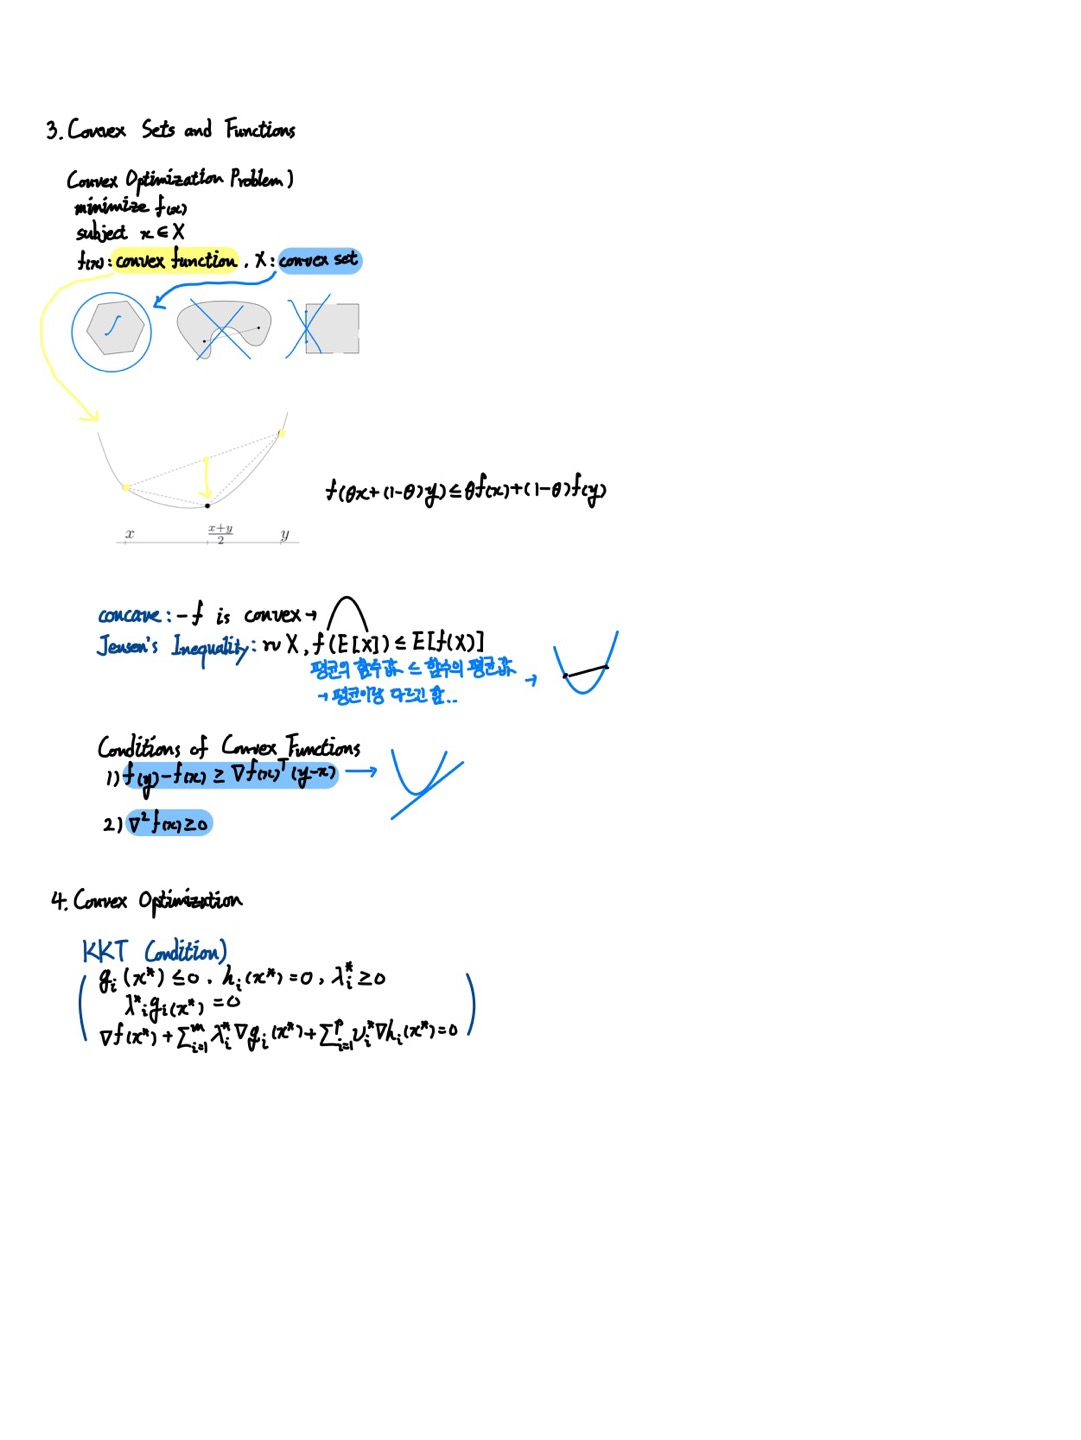 3. Convex Sets and Functions
Convex Optimization Problem)
minimize f(x)
subject x ∈ X
f(x) : convex function, X : convex set
f(θx+(1-θ)y) ≤ θf(x)+(1-θ)f(y)
x (x+y)/2 y
concave : -f is convex →
Jensen's Inequality : ~ X, f(E[X]) ≤ E[f(X)]
평균의 함수값 ≤ 함수의 평균값 →
→ 평균이랑 다르긴 함..
Conditions of Convex Functions
1) f(y)-f(x) ≥ ∇f(x)ᵀ(y-x) →
2) ∇²f(x) ≥ 0
4. Convex Optimization
KKT Condition)
gᵢ(x*) ≤ 0, hᵢ(x*) = 0, λᵢ* ≥ 0
λ*ᵢgᵢ(x*) = 0
∇f(x*) + Σᵢ₌₁ᵐ λᵢ*∇gᵢ(x*) + Σᵢ₌₁ᵖ νᵢ*∇hᵢ(x*) = 0